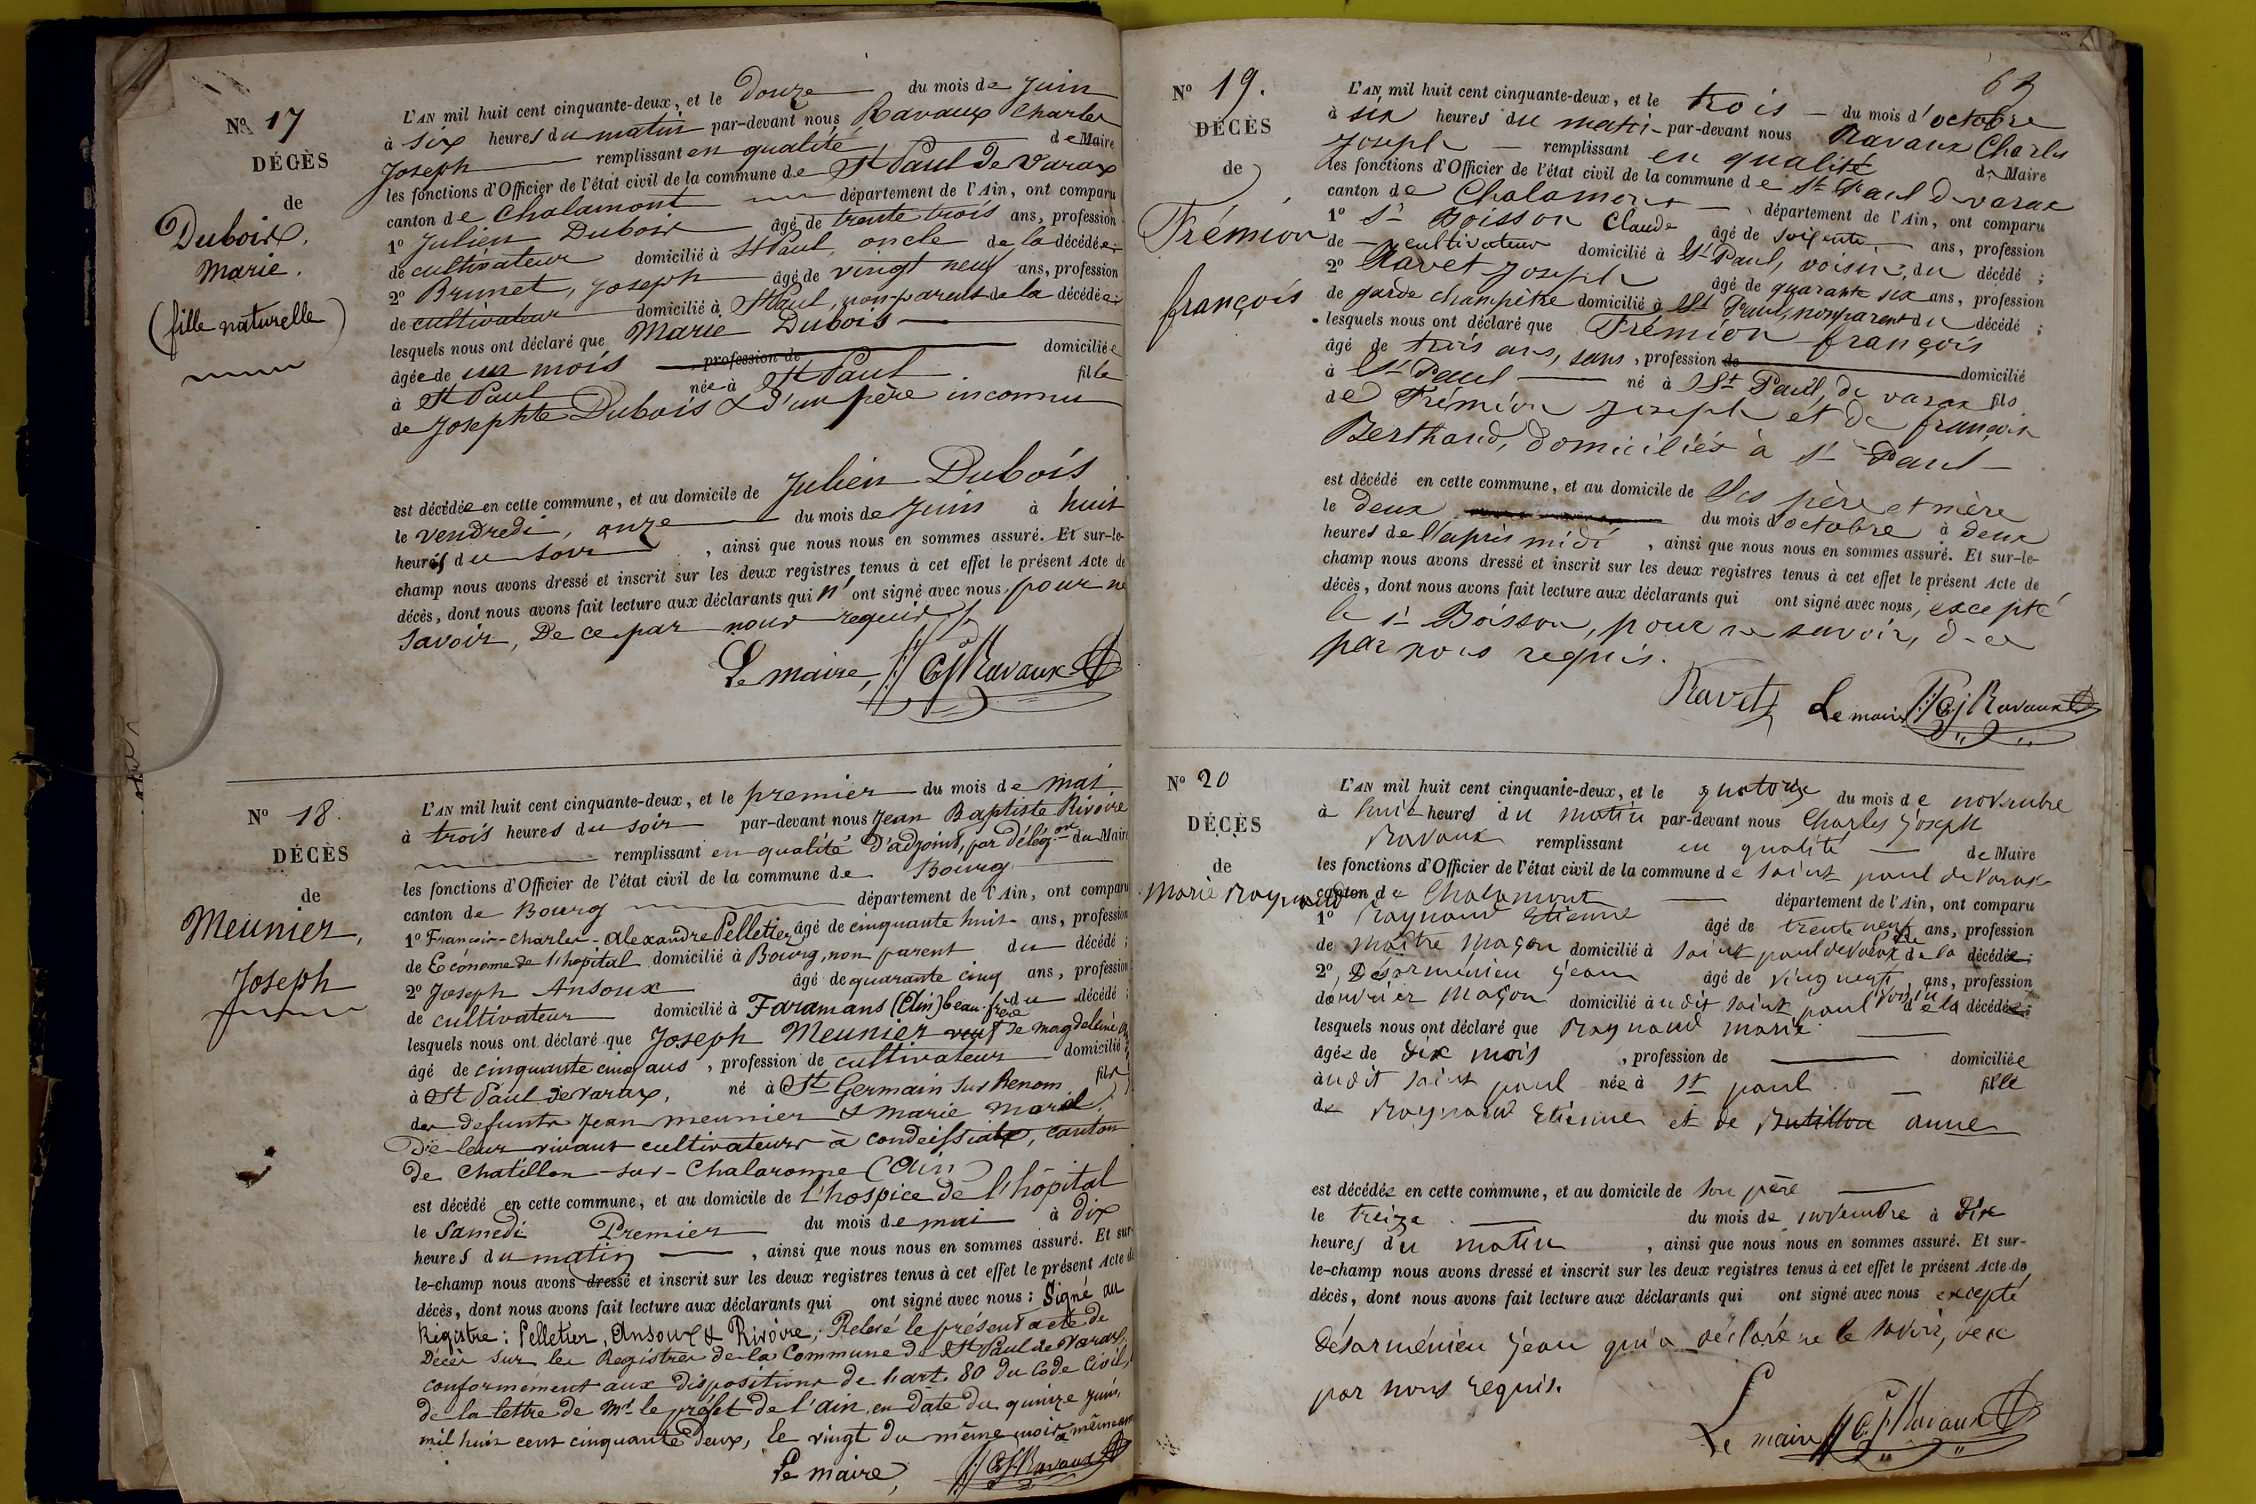 Nº 17
DÉCÈS
de
Dubois,
Marie.
(fille naturelle)
L'AN mil huit cent cinquante-deux, et le Douze du mois de Juin
à six heures du matin par-devant nous Ravaux Charles
Joseph remplissant en qualité de Maire
les fonctions d'Officier de l'état civil de la commune de St Paul de Varax
canton de Chalamont département de l'Ain, ont comparu
1º Julien Dubois âgé de trente trois ans, profession
de cultivateur domicilié à St Paul, oncle de la décédée;
2º Brunet, Joseph âgé de vingt neuf ans, profession
de cultivateur domicilié à St Paul, non-parent de la décédée;
lesquels nous ont déclaré que Marie Dubois
âgée de un mois profession de domiciliée
à St Paul née à St Paul fille
de Josephte Dubois & d'un père inconnu
est décédée en cette commune, et au domicile de Julien Dubois
le vendredi, onze du mois de Juin à huit
heures du soir, ainsi que nous nous en sommes assuré. Et sur-le-
champ nous avons dressé et inscrit sur les deux registres tenus à cet effet le présent Acte de
décès, dont nous avons fait lecture aux déclarants qui n'ont signé avec nous, pour ne
savoir, De ce par nous requis.
Le maire, C J Ravaux
Nº 18.
DÉCÈS
de
Meunier,
Joseph
L'AN mil huit cent cinquante-deux, et le premier du mois de mai
à trois heures du soir par-devant nous Jean Baptiste Rivoire
remplissant en qualité d'adjoint, par délégon du Maire
les fonctions d'Officier de l'état civil de la commune de Bourg
canton de Bourg département de l'Ain, ont comparu
1º François-Charles-Alexandre Pelletier âgé de cinquante huit ans, profession
de Econome de l'hôpital domicilié à Bourg, non parent du décédé;
2º Joseph Ansoux âgé de quarante cinq ans, profession
de cultivateur domicilié à Faramans (Ain) beau-frère du décédé;
lesquels nous ont déclaré que Joseph Meunier veuf de magdeleine
âgé de cinquante cinq ans, profession de cultivateur domicilié
à St Paul de Varax, né à St Germain sur Renom fils
des defunts Jean meunier & marie
De leur vivant cultivateurs à condeissiat, canton
De Chatillon-sur-Chalaronne (Ain)
est décédé en cette commune, et au domicile de l'hospice de l'hôpital
le Samedi Premier du mois de mai à dix
heures du matin, ainsi que nous nous en sommes assuré. Et sur-
le-champ nous avons dressé et inscrit sur les deux registres tenus à cet effet le présent Acte de
décès, dont nous avons fait lecture aux déclarants qui ont signé avec nous: Signé au
Registre: Pelletier, Ansoux & Rivoire. Relevé le présent acte de
Décès sur les Registres de la Commune de St Paul de Varax,
conformément aux dispositions de l'art. 80 du Code Civil,
de la lettre de Mr le préfet de l'ain en date du quinze juin
mil huit cent cinquante Deux, le vingt du même mois & même an
Le maire, C J Ravaux
63
Nº 19.
DÉCÈS
de
Frémion
françois
L'AN mil huit cent cinquante-deux, et le trois du mois d'octobre
à six heures du matin par-devant nous Ravaux Charles
Joseph remplissant en qualité de Maire
les fonctions d'Officier de l'état civil de la commune de St Paul de varax
canton de Chalamont département de l'Ain, ont comparu
1º Sr Boisson Claude âgé de soixante ans, profession
de cultivateur domicilié à St Paul, voisin, du décédé;
2º Ravet Joseph âgé de quarante six ans, profession
de garde champêtre domicilié à St Paul, non parent du décédé;
lesquels nous ont déclaré que Frémion françois
âgé de trois ans, sans, profession de domicilié
à St Paul né à St Paul, de varax fils
de Frémion Joseph et de françoise
Berthaud, domiciliés à St Paul
est décédé en cette commune, et au domicile de Ses père et mère
le deux du mois d'octobre à deux
heures de l'après midi, ainsi que nous nous en sommes assuré. Et sur-le-
champ nous avons dressé et inscrit sur les deux registres tenus à cet effet le présent Acte de
décès, dont nous avons fait lecture aux déclarants qui ont signé avec nous, excepté
le sr Boisson, pour ne savoir, de ce
par nous requis.
Ravet Le maire C J Ravaux
Nº 20
DÉCÈS
de
Marie Raynaud
L'AN mil huit cent cinquante-deux, et le quatorze du mois de novembre
à huit heures du matin par-devant nous Charles Joseph
Ravaux remplissant en qualité de Maire
les fonctions d'Officier de l'état civil de la commune de saint paul de Varax
canton de Chalamont département de l'Ain, ont comparu
1º Raynaud Etienne âgé de trente neuf ans, profession
de maître maçon domicilié à saint paul de Varax père de la décédée;
2º Désarménien Jean âgé de vingt neuf ans, profession
d'ouvrier maçon domicilié à udit saint paul voisin de la décédée;
lesquels nous ont déclaré que Raynaud marie
âgée de dix mois, profession de domiciliée
à udit saint paul née à St paul fille
de Raynaud Etienne et de Butillon anne
est décédée en cette commune, et au domicile de son père
le treize du mois de novembre à dix
heures du matin, ainsi que nous nous en sommes assuré. Et sur-
le-champ nous avons dressé et inscrit sur les deux registres tenus à cet effet le présent Acte de
décès, dont nous avons fait lecture aux déclarants qui ont signé avec nous excepté
Désarménien Jean qui a déclaré ne le savoir, de ce
par nous requis.
Le maire C J Ravaux